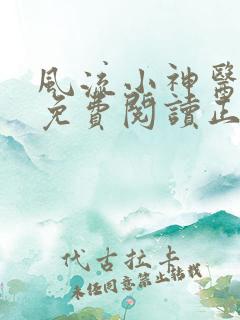 風流小神醫
免費閱讀正
代古拉卡
未经同意禁止转载